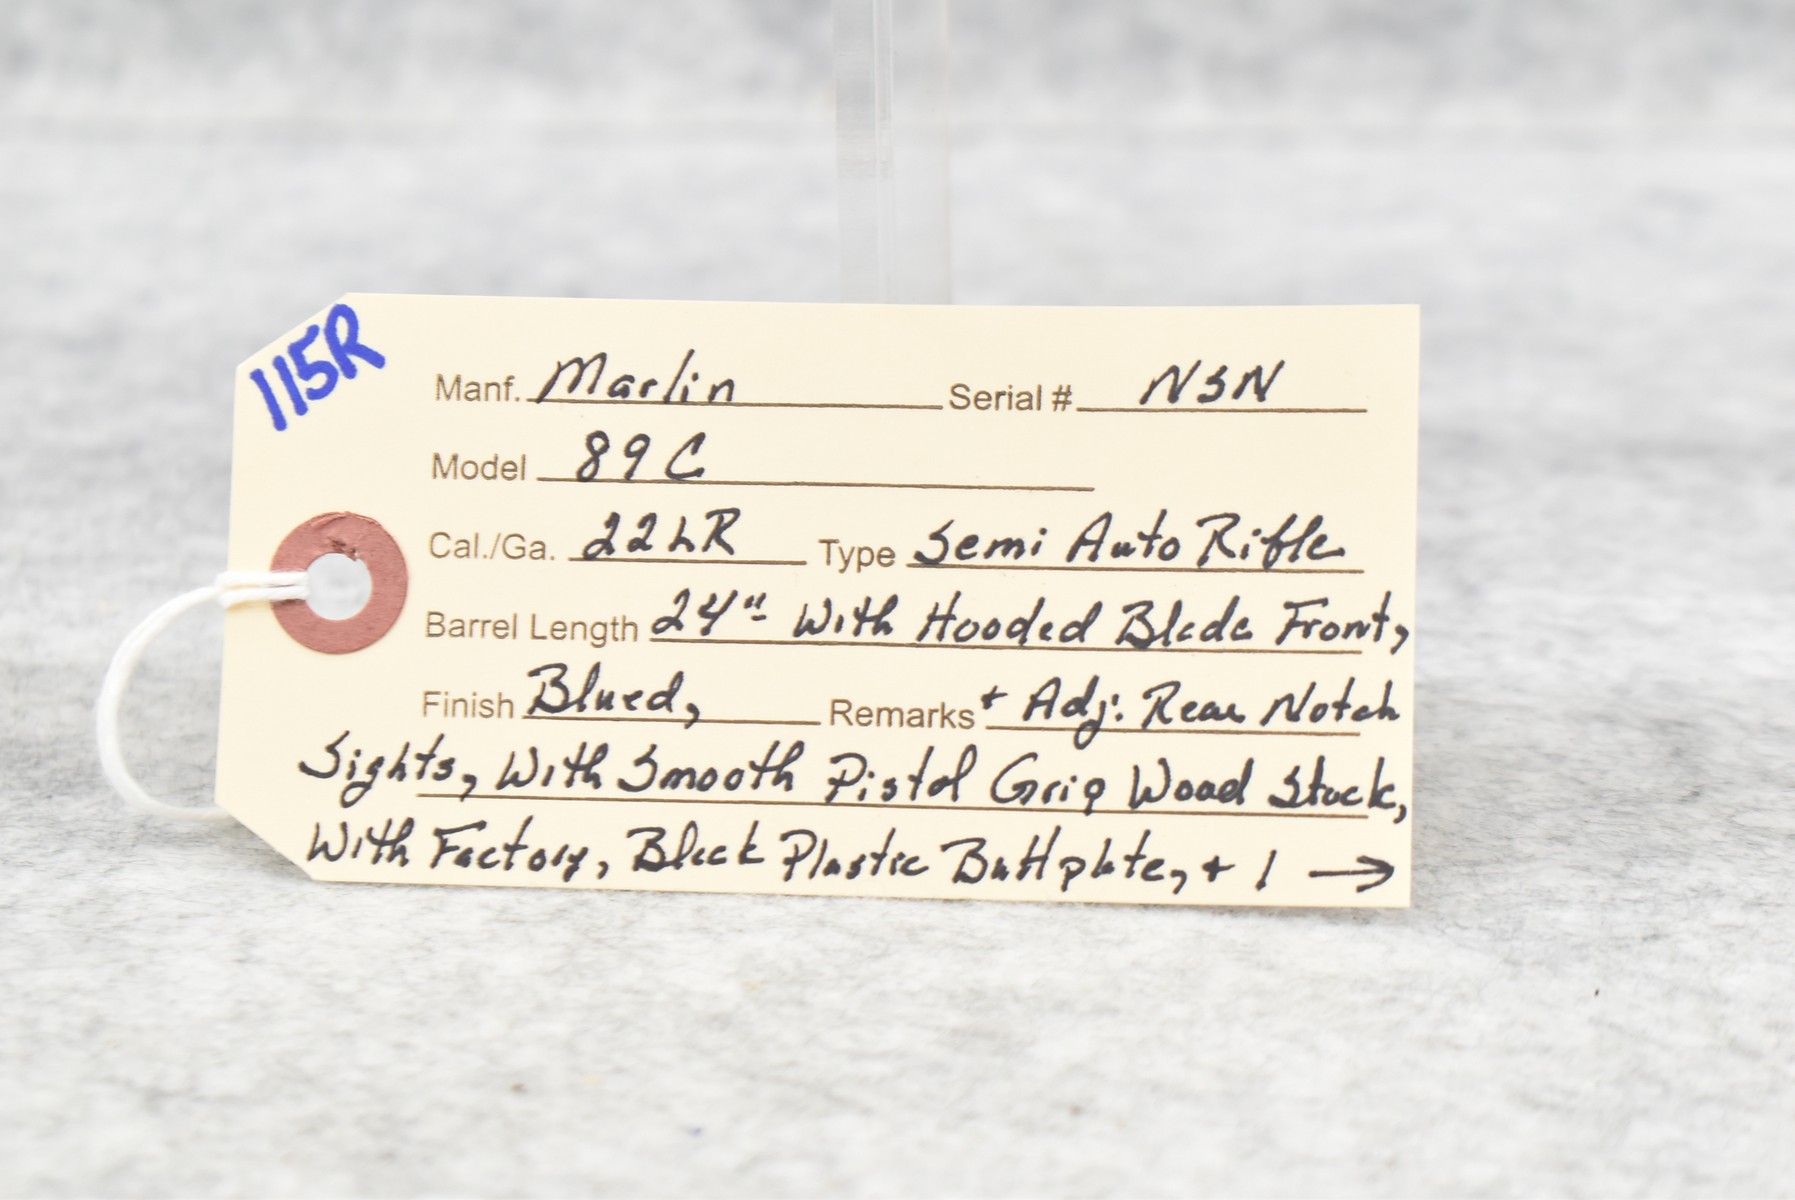 115R
Manf. Marlin Serial # NSN
Model 89C
Cal./Ga. 22LR Type Semi Auto Rifle
Barrel Length 24" With Hooded Blade Front,
Finish Blued, Remarks + Adj. Rear Notch
Sights, With Smooth Pistol Grip Wood Stock,
With Factory, Black Plastic Buttplate, + 1 →